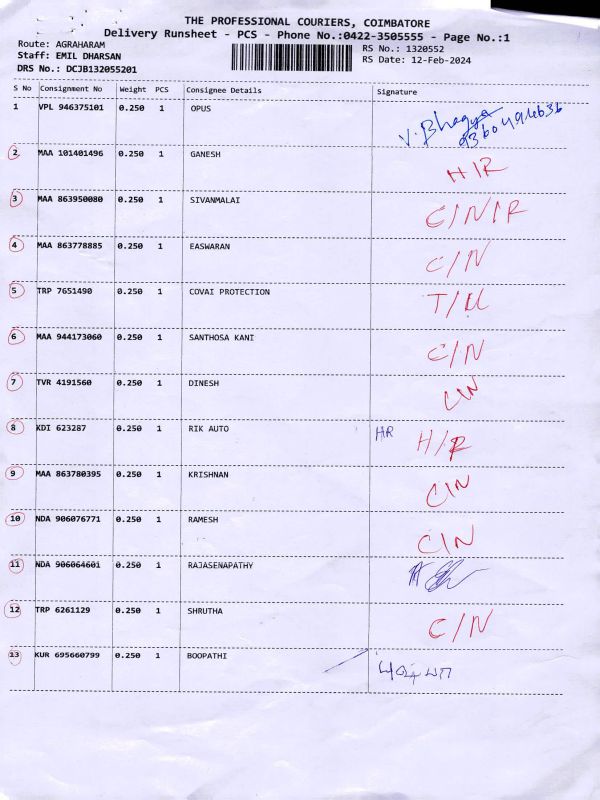 THE PROFESSIONAL COURIERS, COIMBATORE
Delivery Runsheet - PCS - Phone No.:0422-3505555 - Page No.:1
Route: AGRAHARAM
Staff: EMIL DHARSAN
DRS No.: DCJB132055201
RS No.: 1320552
RS Date: 12-Feb-2024
S No Consignment No Weight PCS Consignee Details Signature
1 VPL 946375101 0.250 1 OPUS V. Bhagya
2 MAA 101401496 0.250 1 GANESH H/R
3 MAA 863950080 0.250 1 SIVANMALAI C/N/R
4 MAA 863778885 0.250 1 EASWARAN C/N
5 TRP 7651490 0.250 1 COVAI PROTECTION T/U
6 MAA 944173060 0.250 1 SANTHOSA KANI C/N
7 TVR 4191560 0.250 1 DINESH C/N
8 KDI 623287 0.250 1 RIK AUTO HR H/R
9 MAA 863780395 0.250 1 KRISHNAN C/N
10 NDA 906076771 0.250 1 RAMESH C/N
11 NDA 906064601 0.250 1 RAJASENAPATHY
12 TRP 6261129 0.250 1 SHRUTHA C/N
13 KUR 695660799 0.250 1 BOOPATHI